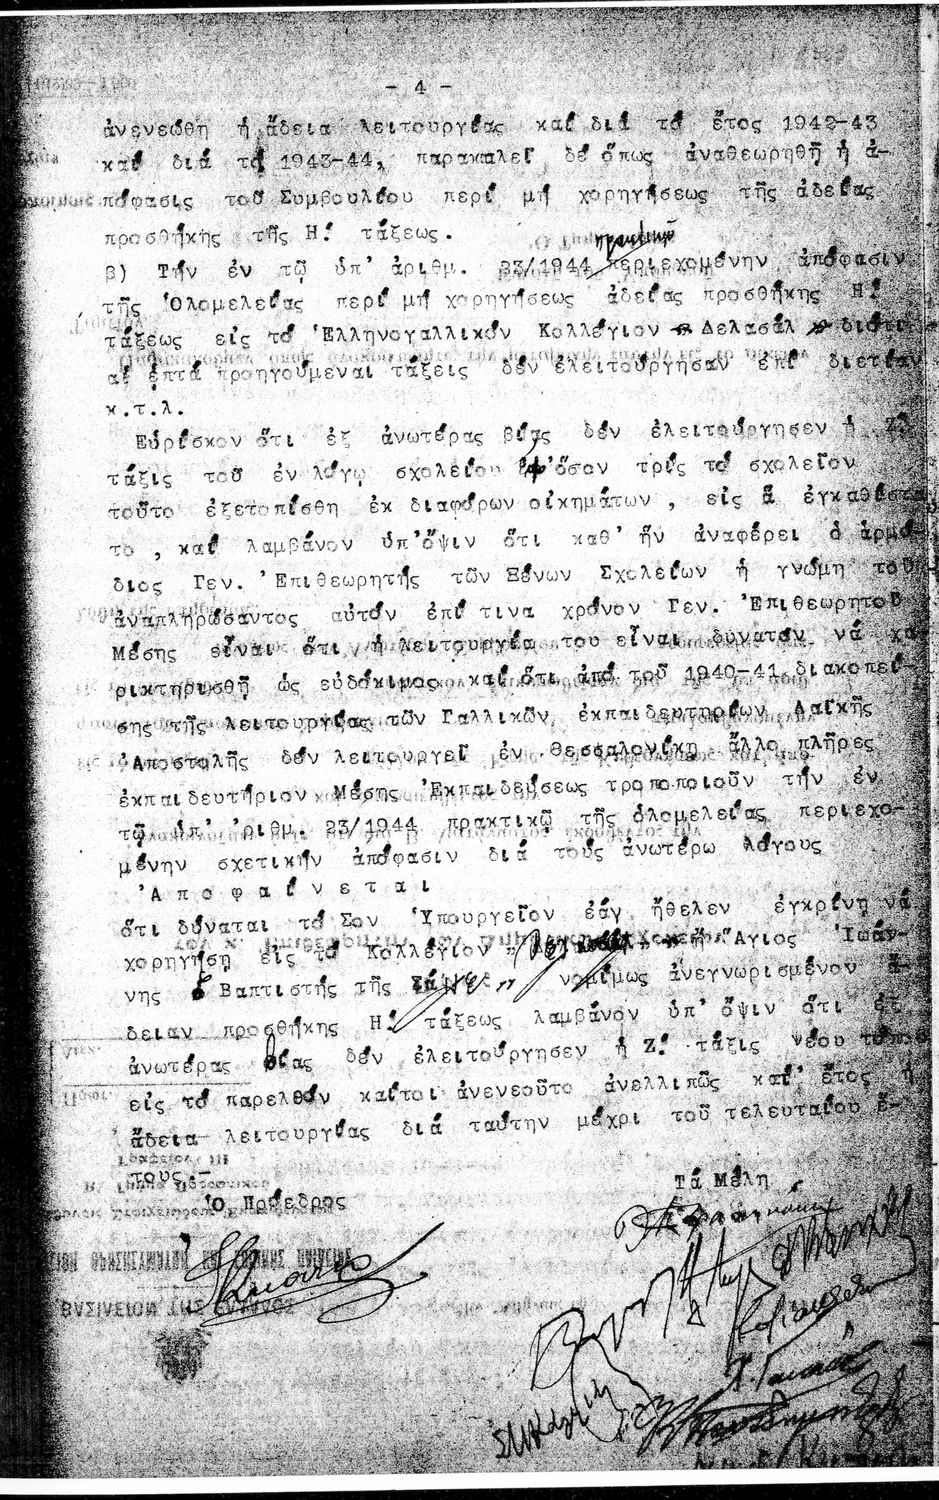 - 4 -
ἀνενεώθη ἡ ἄδεια λειτουργίας καί διά τό ἔτος 1942-43
καί διά τό 1943-44, παρακαλεῖ δέ ὅπως ἀναθεωρηθῇ ἡ ἀ-
πόφασις τοῦ Συμβουλίου περί μή χορηγήσεως τῆς ἀδείας
προσθήκης τῆς Η! τάξεως.
β) Τήν ἐν τῷ ὑπ' ἀριθμ. 23/1944 περιεχομένην ἀπόφασιν
τῆς Ὁλομελείας περί μή χορηγήσεως ἀδείας προσθήκης Η!
τάξεως εἰς τό Ἑλληνογαλλικόν Κολλέγιον Δελασάλ διότι
αἱ ἑπτά προηγούμεναι τάξεις δέν ἐλειτούργησαν ἐπί διετίαν
κ.τ.λ.
Εὑρίσκον ὅτι ἐξ ἀνωτέρας βίας δέν ἐλειτούργησεν ἡ Ζ!
τάξις τοῦ ἐν λόγῳ σχολείου ἐφ'ὅσον τρίς τό σχολεῖον
τοῦτο ἐξετοπίσθη ἐκ διαφόρων οἰκημάτων, εἰς ἅ ἐγκαθίστα
το, καί λαμβάνον ὑπ'ὄψιν ὅτι καθ' ἥν ἀναφέρει ὁ ἁρμό-
διος Γεν. Ἐπιθεωρητής τῶν Ξένων Σχολείων ἡ γνώμη τοῦ
ἀναπληρώσαντος αὐτόν ἐπί τινα χρόνον Γεν. Ἐπιθεωρητοῦ
Μέσης εἶναι ὅτι ἡ λειτουργία του εἶναι δυνατόν νά χα-
ρακτηρισθῇ ὡς εὐδόκιμος καί ὅτι ἀπό τοῦ 1940-41 διακοπεί-
σης τῆς λειτουργίας τῶν Γαλλικῶν ἐκπαιδευτηρίων Λαϊκῆς
Ἀποστολῆς δέν λειτουργεῖ ἐν Θεσσαλονίκῃ ἄλλο πλῆρες
ἐκπαιδευτήριον Μέσης Ἐκπαιδεύσεως τροποποιοῦν τήν ἐν
τῷ ὑπ' ἀριθμ. 23/1944 πρακτικῷ τῆς ὁλομελείας περιεχο-
μένην σχετικήν ἀπόφασιν διά τούς ἀνωτέρω λόγους
Ἀποφαίνεται
ὅτι δύναται τό Σον Ὑπουργεῖον ἐάν ἤθελεν ἐγκρίνῃ νά
χορηγήσῃ εἰς τό Κολλέγιον ἡ Ἅγιος Ἰωάν-
νης ὁ Βαπτιστής τῆς νομίμως ἀνεγνωρισμένον ἄ-
δειαν προσθήκης Η! τάξεως λαμβάνον ὑπ' ὄψιν ὅτι ἐξ
ἀνωτέρας βίας δέν ἐλειτούργησεν ἡ Ζ! τάξις νέου τύπου
εἰς τό παρελθόν καίτοι ἀνενεοῦτο ἀνελλιπῶς κατ' ἔτος ἡ
ἄδεια λειτουργίας διά ταύτην μέχρι τοῦ τελευταίου ἔ-
τους.-
Ὁ Πρόεδρος
Τά Μέλη